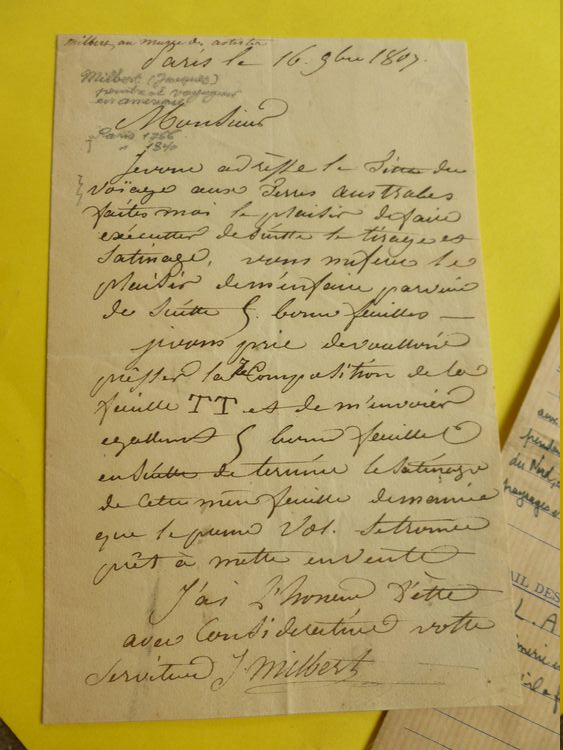 milbert, au musée des artistes
Paris le 16. 9bre 1807.
Milbert (Jacques)
peintre et voyageur
en amérique
Paris 1766
" 1840
Monsieur
Je vous adresse le titre du
voïage aux Terres australes
faites moi le plaisir de faire
exécutter de suitte le tirage et
satinage, vous me feré le
plaisir de m'en faire parvenir
de suitte 5. bonne feuilles —
je vous prie de vouloir
présser la Composition de la
feuille TT et de m'envoier
egallement 5 bonne feuilles
en suitte de terminé le satinage
de cette même feuille de manière
que le premier Vol. se trouve
prêt à mettre en vente
J'ai l'honneur d'être
avec Considération votre
serviteur J. Milbert
pendant
du Nord,
paysages
AIL DES
L. A